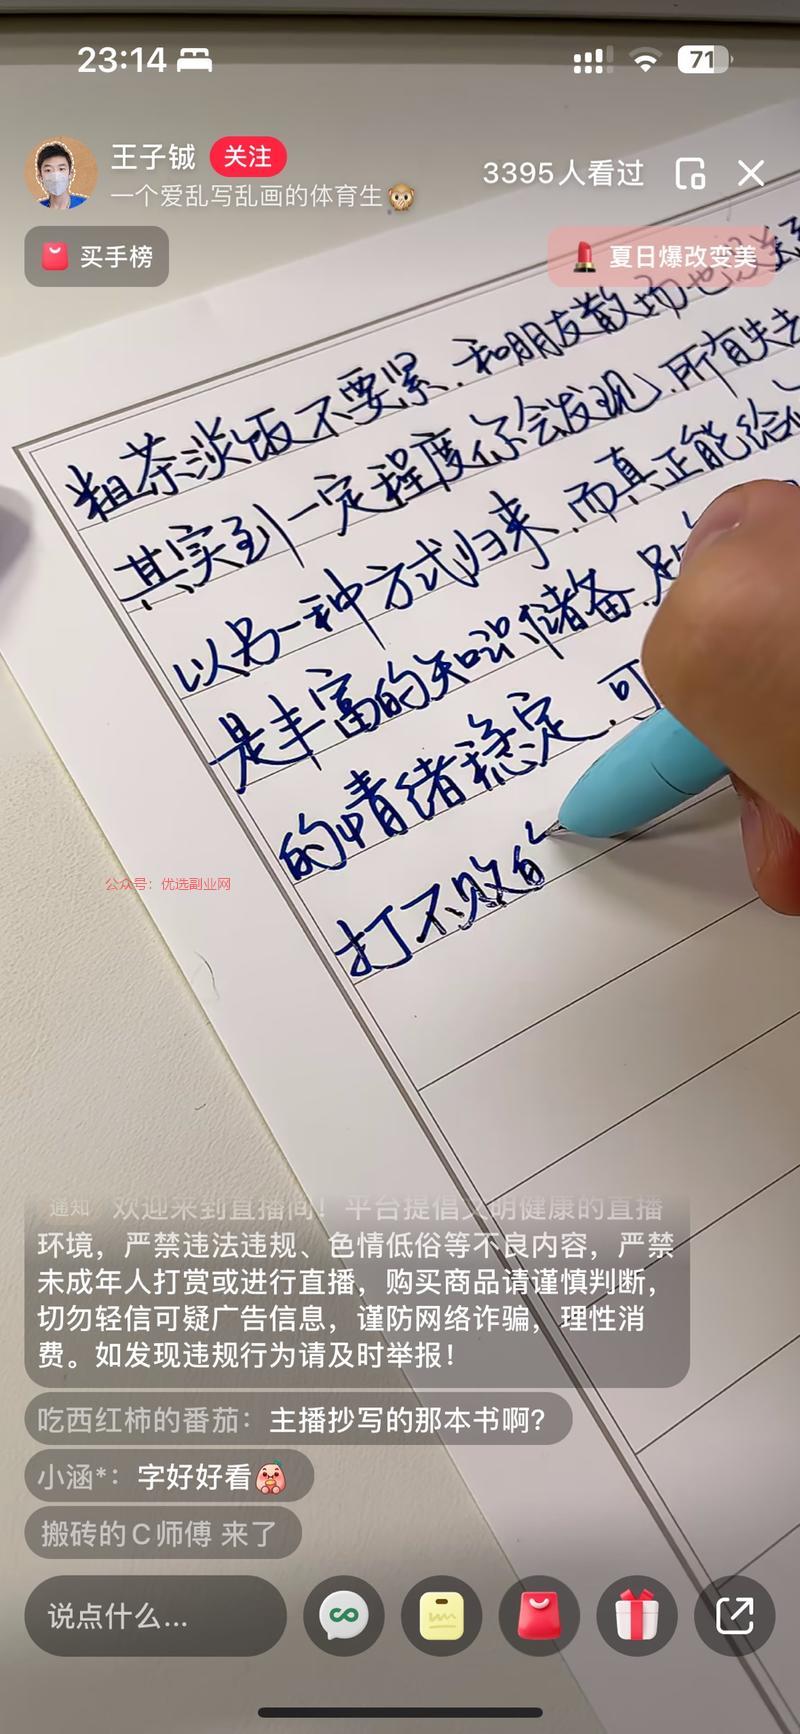 23:14
71
王子铖 关注
3395人看过
一个爱乱写乱画的体育生
买手榜
夏日爆改变美
粗茶淡饭不要紧.和朋友散场也没关系
其实到一定程度你会发现.所有失去
以另一种方式归来.而真正能给
是丰富的知识储备.足
的情绪稳定.可
打不败
公众号：优选副业网
通知 欢迎来到直播间！平台提倡文明健康的直播
环境，严禁违法违规、色情低俗等不良内容，严禁
未成年人打赏或进行直播，购买商品请谨慎判断，
切勿轻信可疑广告信息，谨防网络诈骗，理性消
费。如发现违规行为请及时举报！
吃西红柿的番茄：主播抄写的那本书啊？
小涵*：字好好看
搬砖的C师傅 来了
说点什么...